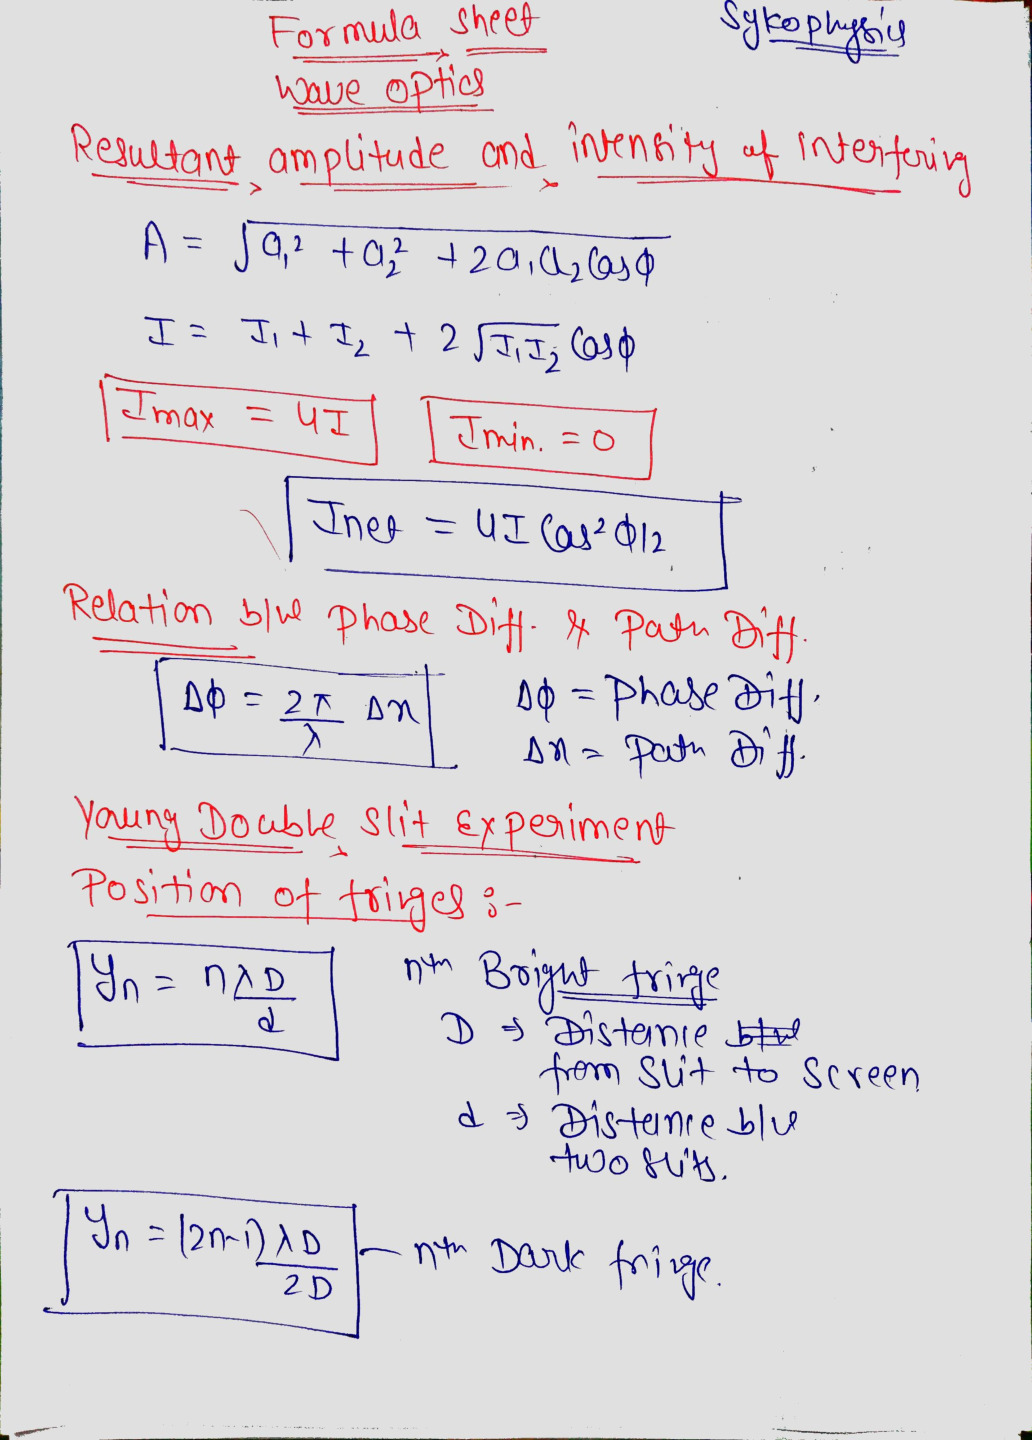 Formula sheet
Sykophysics
Wave optics
Resultant amplitude and intensity of interfering
A = √a₁² + a₂² + 2a₁a₂ Cos φ
I = I₁ + I₂ + 2 √I₁I₂ Cos φ
Imax = 4I
Imin. = 0
Inet = 4I Cos² φ/2
Relation b/w phase Diff. & Path Diff.
Δφ = 2π/λ Δx
Δφ = phase Diff.
Δx = path Diff.
Young Double Slit Experiment
Position of fringes :-
Yn = nλD/d
nth Bright fringe
D ⇒ Distance btw
from slit to screen
d ⇒ Distance b/w
two slits.
Yn = (2n-1) λD/2D
nth Dark fringe.